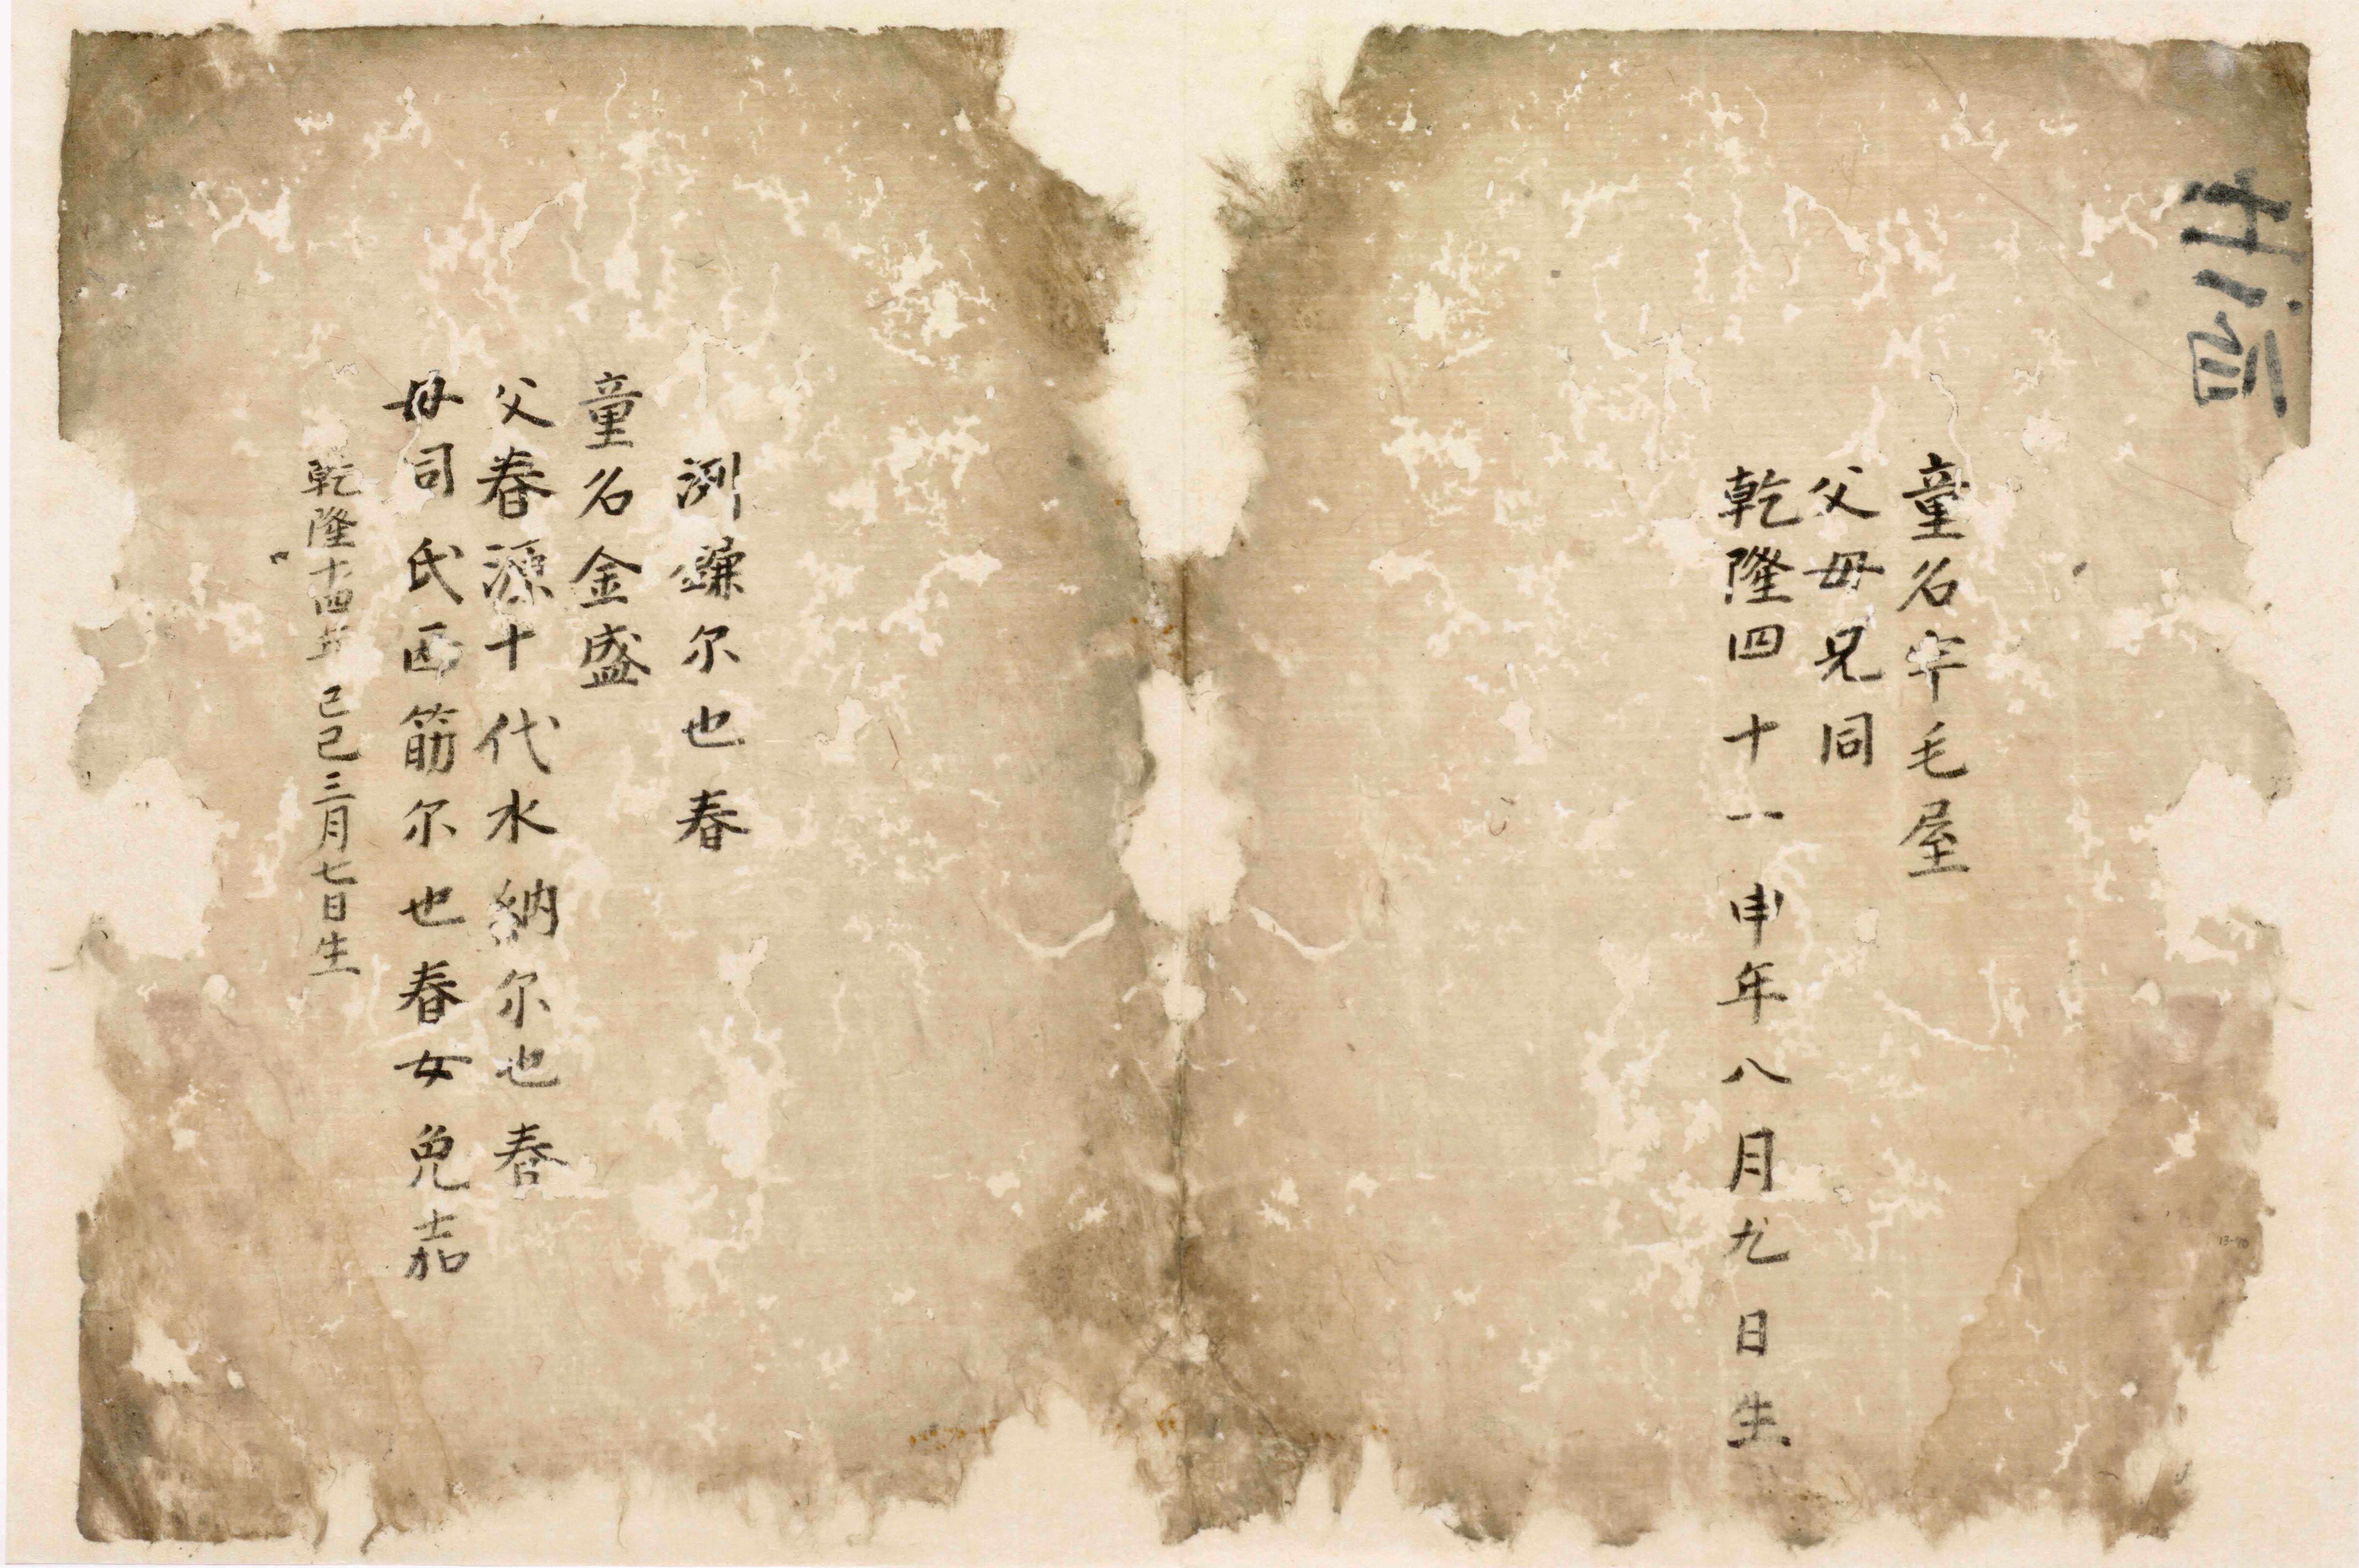 童名宰毛屋
父母兄同
乾隆四十一申年八月九日生
洌鎌尔也春
童名金盛
父春源十代水納尔也春
母司氏西筋尔也春女免嘉
乾隆十四年己巳三月七日生